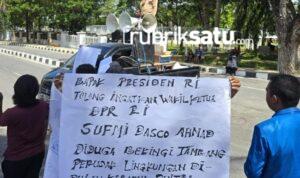 rubriksatu.com
BAPAK PRESIDEN RI
TOLONG INGATKAN WAKIL KETUA
DPR RI
SUFMI DASCO AHMAD
DIDUGA BEKINGI TAMBANG
PERUSAK LINGKUNGAN DI-